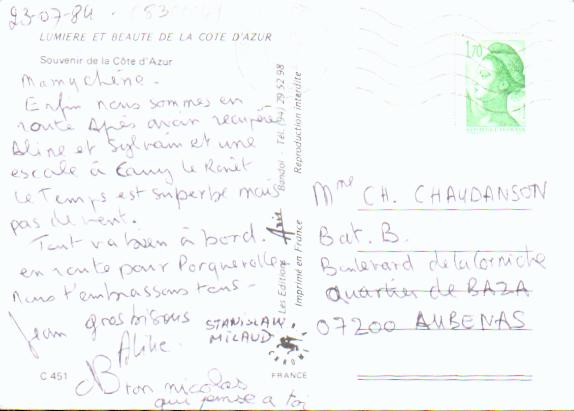 23-07-84.
LUMIERE ET BEAUTE DE LA COTE D'AZUR
Souvenir de la Côte d'Azur
Mamychène -
Enfin nous sommes en
route Après avoir récupéré
Aline et Sylvain et une
escale à
Le Temps est superbe mais
pas de vent.
Tout va bien à bord.
en route pour Porquerolles
Nous t'embrassons tous -
Jean gros bisous
Aline.
STANISLAW
MILAUD
nicolas
qui pense a toi
C 451
FRANCE
Les Editions Bandol - Tél. (94) 29 52 98
Imprimé en France Reproduction interdite
1,70
Mme CH. CHAUDANSON
Bat. B.
Boulevard de la Corniche
Quartier de BAZA
07200 AUBENAS